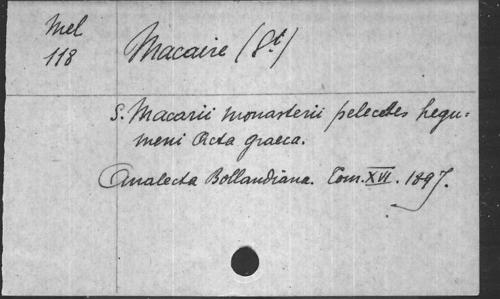 Mel
118
Macaire (St)
S. Macarii monasterii pelecetes hegu-
meni Acta graeca.
Analecta Bollandiana. Tom. XVI. 1897.